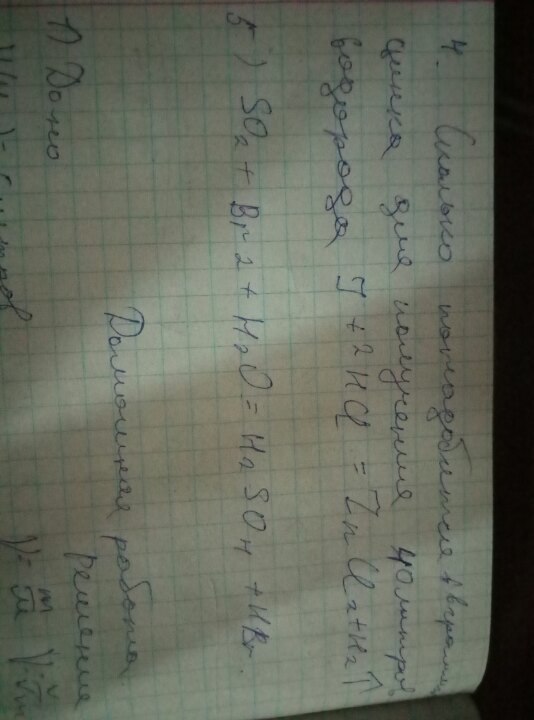 4. Сколько понадобится (в граммах
цинка для получения 40 литров
водорода I + 2HCl = ZnCl₂ + H₂↑
5) SO₂ + Br₂ + H₂O = H₂SO₄ + HBr.
Домашняя работа.
1) Дано решение
ν = m/M ν = V/Vm